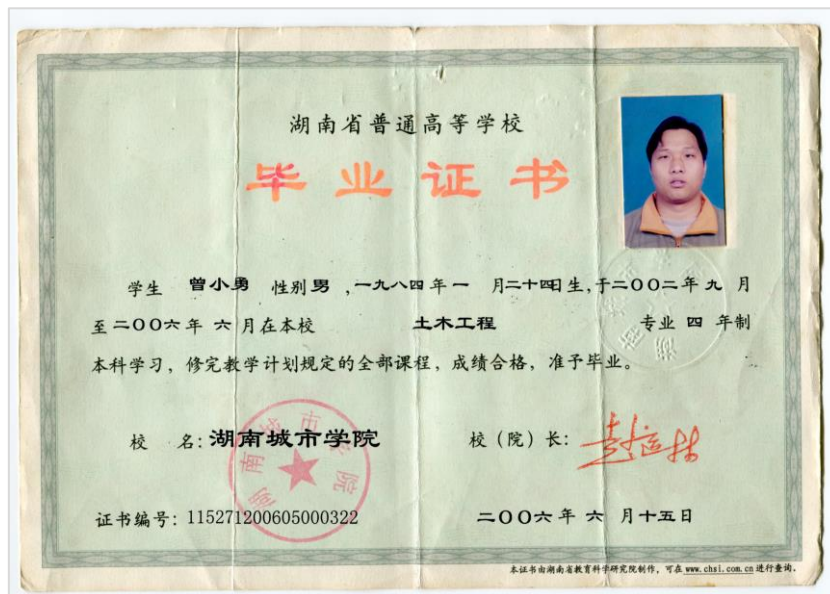 湖南省普通高等学校
毕业证书
学生 曾小勇 性别男,一九八四年一 月二十四日生,于二〇〇二年九 月
至二〇〇六年 六 月在本校 土木工程 专业 四 年制
本科学习,修完教学计划规定的全部课程,成绩合格,准予毕业。
校 名:湖南城市学院 校(院)长:
湖南城市学院
证书编号:115271200605000322 二〇〇六年 六 月十五日
本证书由湖南省教育科学研究院制作,可在 www.chsi.com.cn 进行查询。